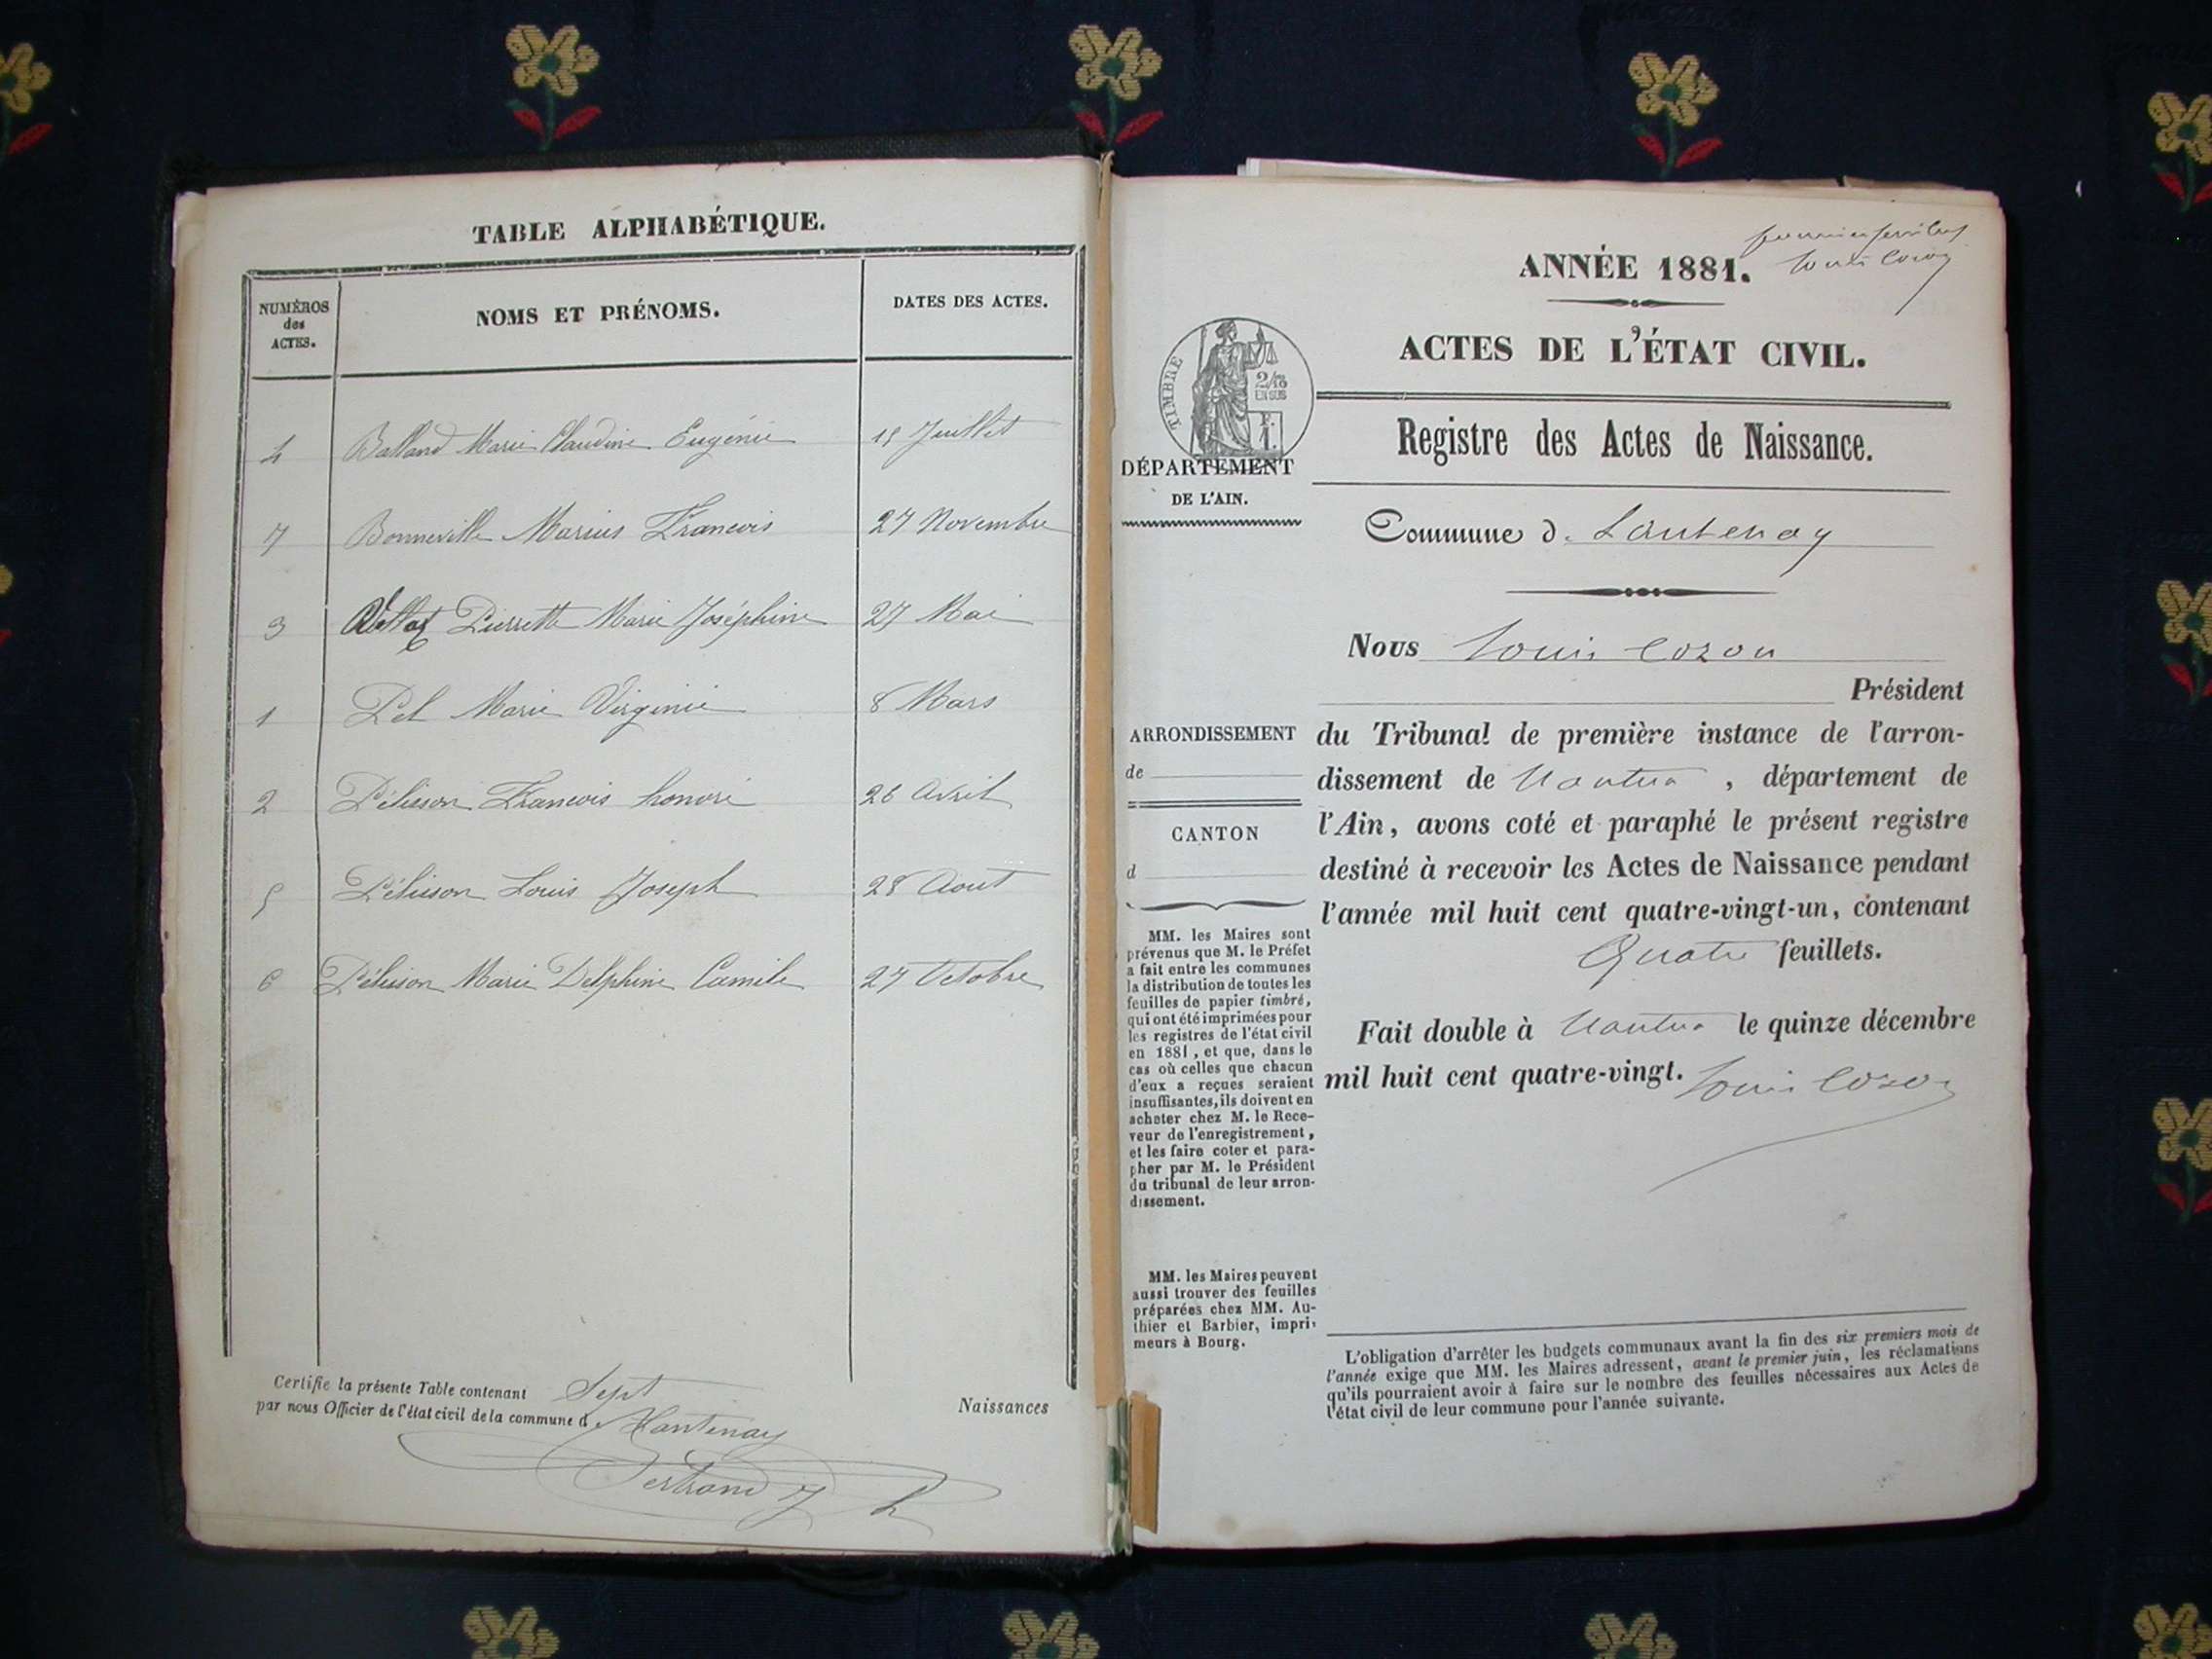 TABLE ALPHABÉTIQUE.
NUMÉROS
des
ACTES.
NOMS ET PRÉNOMS.
DATES DES ACTES.
4 Balland Marie Claudine Eugénie 15 Juillet
7 Bonneville Marius Francois 27 Novembre
3 Pierrette Marie Joséphine 27 Mai
1 Pel Marie Virginie 8 Mars
2 Pélisson Francois honoré 26 Avril
5 Pélisson Louis Joseph 28 Aout
6 Pélisson Marie Delphine Camile 27 Octobre
Certifie la présente Table contenant Sept Naissances
par nous Officier de l'état civil de la commune d. Lantenay
Bertrand
ANNÉE 1881.
Louis Cozon
ACTES DE L'ÉTAT CIVIL.
TIMBRE
2/10
EN SUS
F.
1.
DÉPARTEMENT
DE L'AIN.
Registre des Actes de Naissance.
Commune d. Lantenay
Nous Louis Cozon
Président
du Tribunal de première instance de l'arron-
dissement de Nantua, département de
l'Ain, avons coté et paraphé le présent registre
destiné à recevoir les Actes de Naissance pendant
l'année mil huit cent quatre-vingt-un, contenant
Quatre feuillets.
Fait double à Nantua le quinze décembre
mil huit cent quatre-vingt.
Louis Cozon
ARRONDISSEMENT
de
CANTON
d
MM. les Maires sont
prévenus que M. le Préfet
a fait entre les communes
la distribution de toutes les
feuilles de papier timbré,
qui ont été imprimées pour
les registres de l'état civil
en 1881, et que, dans le
cas où celles que chacun
d'eux a reçues seraient
insuffisantes, ils doivent en
acheter chez M. le Rece-
veur de l'enregistrement,
et les faire coter et para-
pher par M. le Président
du tribunal de leur arron-
dissement.
MM. les Maires peuvent
aussi trouver des feuilles
préparées chez MM. Au-
thier et Barbier, impri-
meurs à Bourg.
L'obligation d'arrêter les budgets communaux avant la fin des six premiers mois de
l'année exige que MM. les Maires adressent, avant le premier juin, les réclamations
qu'ils pourraient avoir à faire sur le nombre des feuilles nécessaires aux Actes de
l'état civil de leur commune pour l'année suivante.